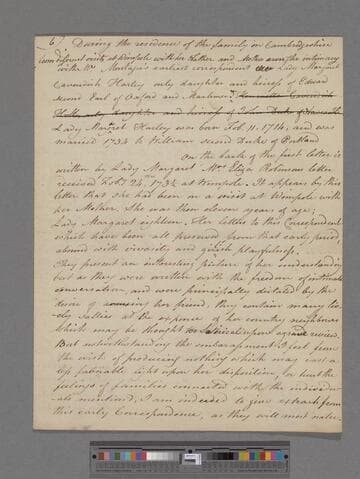 6) During the residence of the family in Cambridgeshire
different visits at Wimpole with her Father and Mother
with Mrs Montagu's earliest correspondent Lady Margaret
Cavendish Harley only daughter and heiress of Edward
second Earl of Oxford and Mortimer.
only daughter and heiress of John Duke of Newcastle
Lady Margaret Harley was born Feb 11. 1714, and was
married 1734 to William second Duke of Portland
On the back of the first letter is
written by Lady Margaret Mrs Eliza Robinson letter
received Feb 24 1731/2 at Wimpole. It appears by this
letter that she had been on a visit at Wimpole with
her Mother. She was then eleven years of age;
Lady Margaret eighteen. Her letters to this Correspondent
which have been all preserved from that early period,
abound with vivacity and girlish playfulness.
They present an interesting picture of her understanding
but as they were written with the freedom of intimate
conversation and were principally dictated by the
desire of amusing her friend, they contain many live-
ly sallies at the expence of her country neighbours
which may be thought too satirical upon a review.
But notwithstanding the embarrassment I feel from
the wish of producing nothing which may cast a
less favorable light upon her disposition, or hurt the
feelings of families connected with the individu-
als mentioned, I am induced to give extracts from
this early Correspondence, as they will most natu-